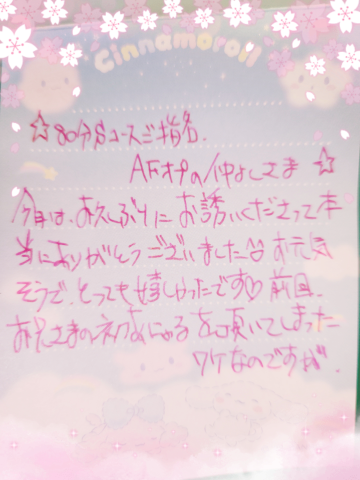 Cinnamoroll
☆80分Sコースご指名.
AFオプの仲よしさま☆
今日は、お久しぶりにお誘いくださって本
当にありがとうございました^^お元気
そうで、とっても嬉しかったです♡前回、
お兄さまの初あにゃるを頂いてしまった
ワケなのですが、